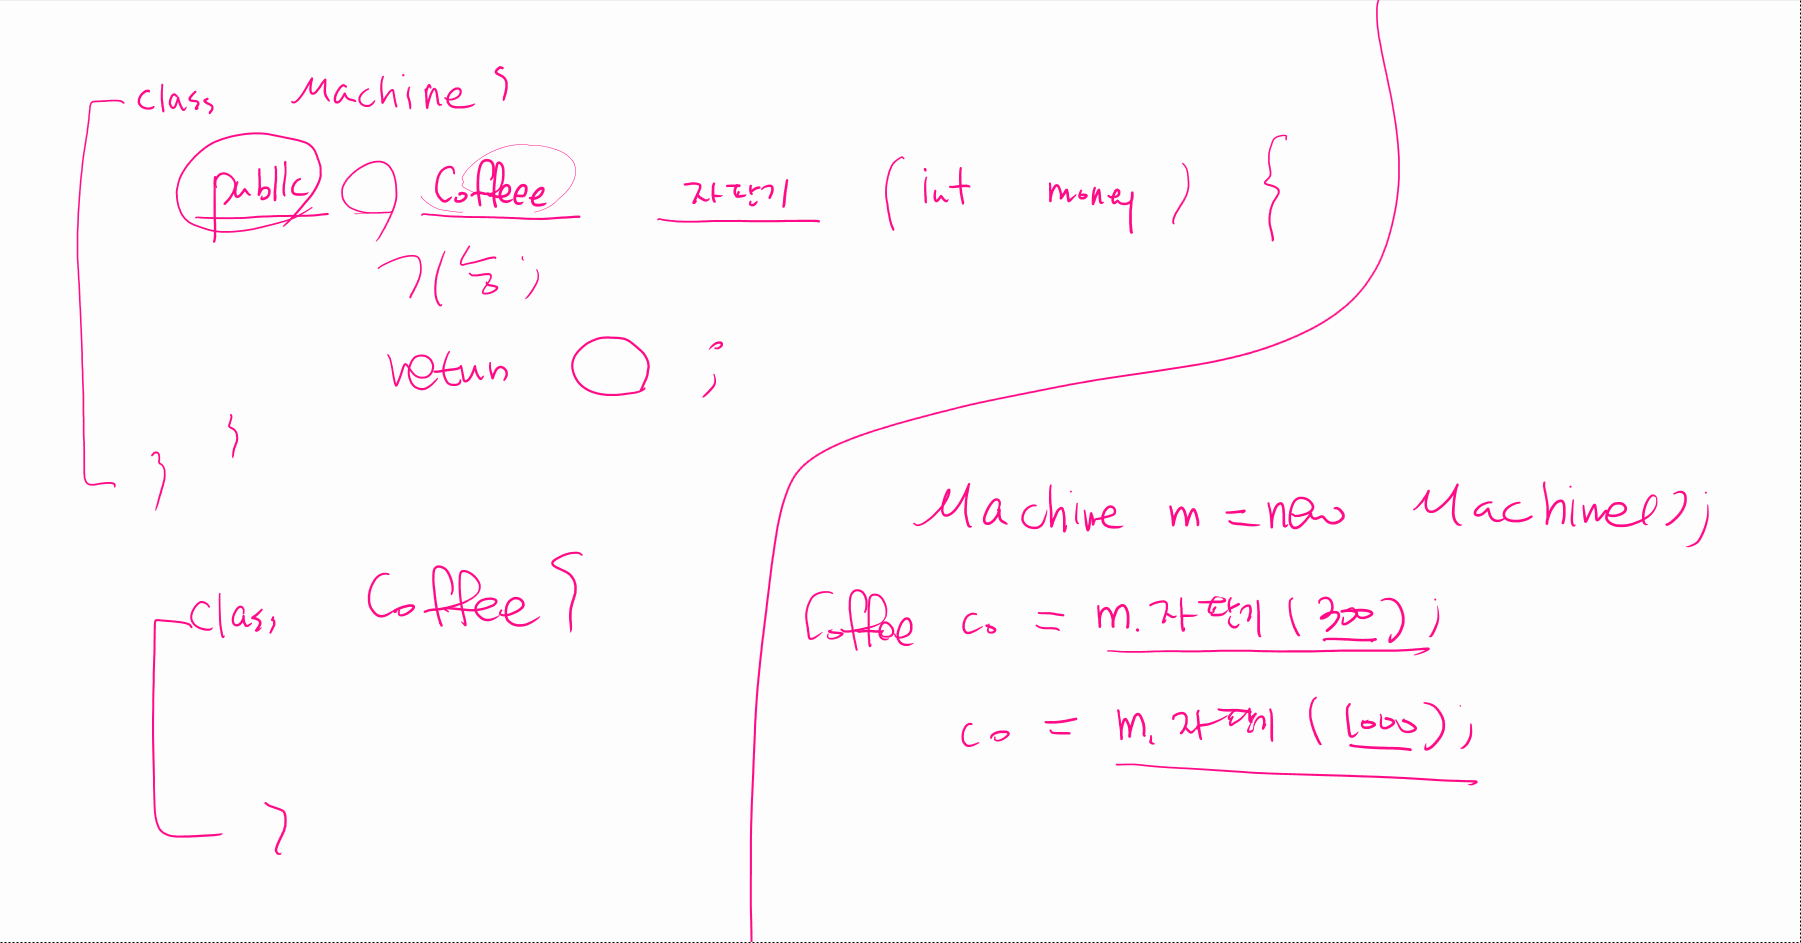 class Machine {
public Coffeee 자판기 (int money) {
기능;
return ;
}
}
class Coffee {
}
Machine m = new Machine();
Coffee co = m.자판기(300);
co = m.자판기(1000);